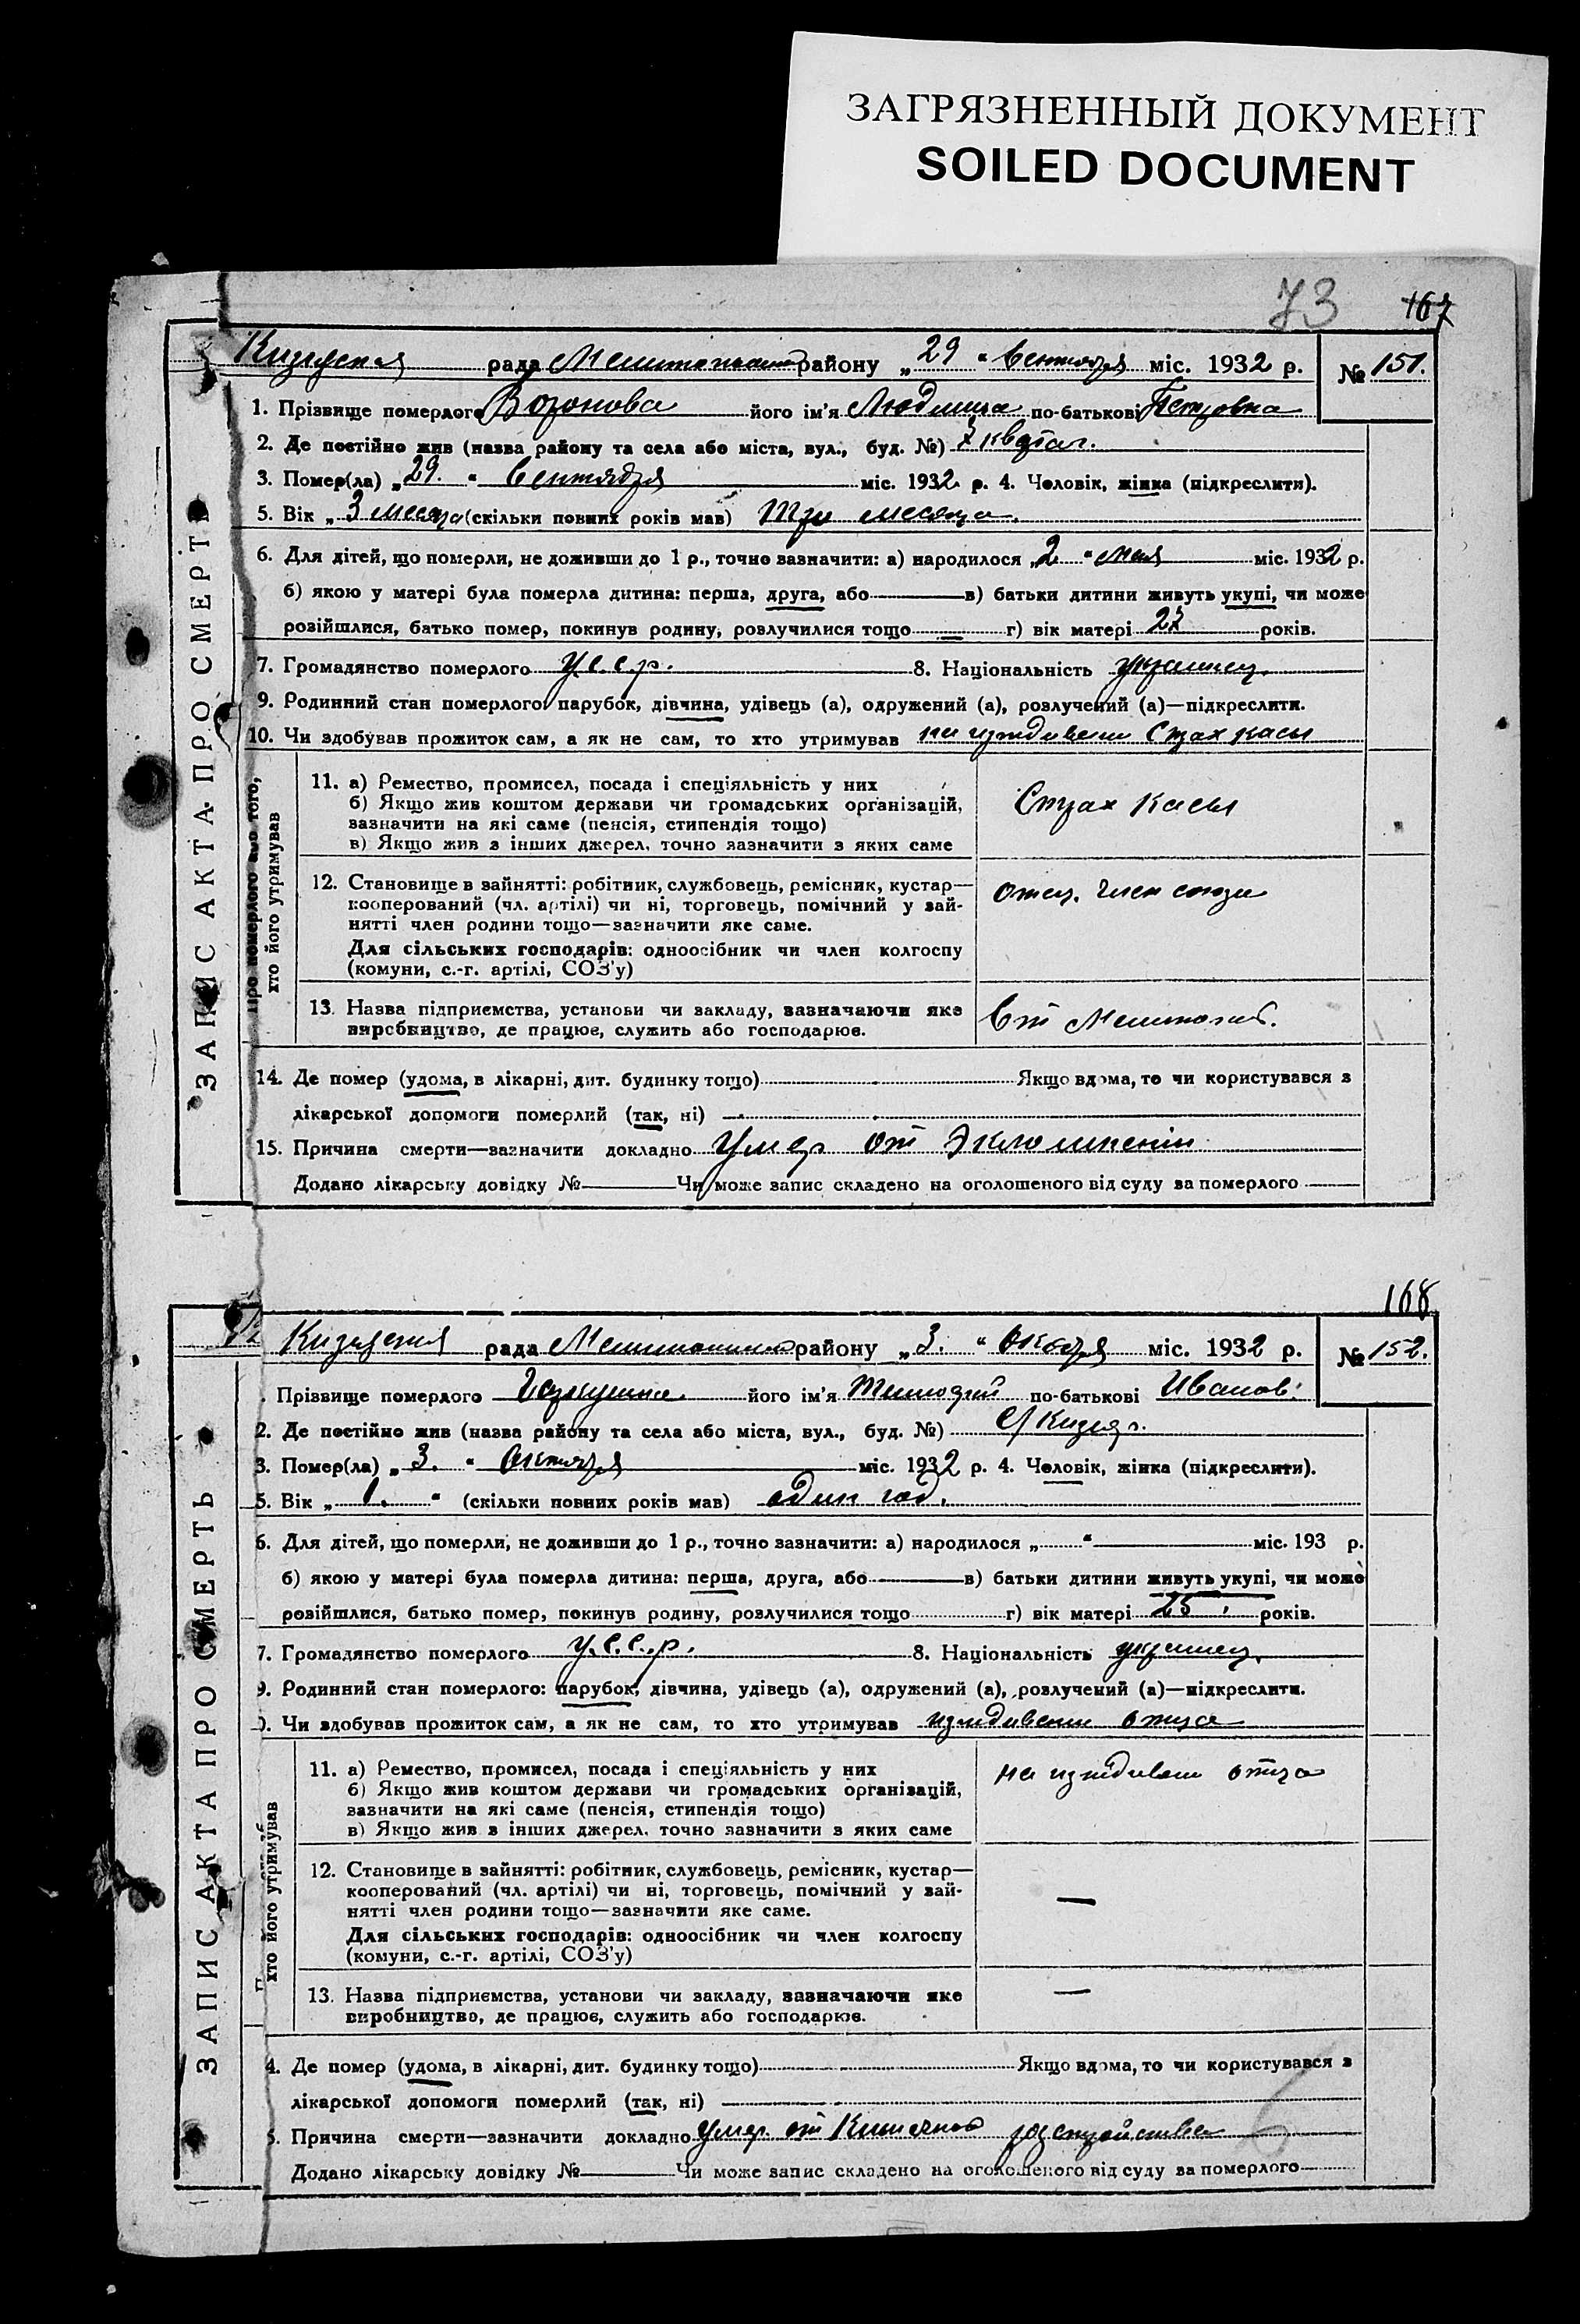 ЗАГРЯЗНЕННЫЙ ДОКУМЕНТ
SOILED DOCUMENT
73 167
ЗАПИС АКТА ПРО СМЕРТЬ
Кизиярская рада Мелитопольск району „29 “ Сентября міс. 1932 р. № 151.
1. Прізвище померлого Воронова його ім'я Людмила по-батькові Петровна
2. Де постійно жив (назва району та села або міста, вул., буд. №) 7 квартал.
3. Помер(ла) „29. “ Сентября міс. 1932 р. 4. Человік, жінка (підкреслити).
5. Вік „3 месяца (скільки повних років мав) Три месяца.
6. Для дітей, що померли, не доживши до 1 р., точно зазначити: а) народилося „2 “ мая міс. 1932 р.
б) якою у матері була померла дитина: перша, друга, або в) батьки дитини живуть укупі, чи може
розійшлися, батько помер, покинув родину, розлучилися тощо — г) вік матері років.
7. Громадянство померлого У.С.С.Р. 8. Національність украинец.
9. Родинний стан померлого: парубок, дівчина, удівець (а), одружений (а), розлучений (а)—підкреслити.
10. Чи здобував прожиток сам, а як не сам, то хто утримував на иждивении Страх кассы
Про померлого або того,
хто його утримував
11. а) Ремество, промисел, посада і спеціяльність у них
б) Якщо жив коштом держави чи громадських організацій,
зазначити на які саме (пенсія, стипендія тощо)
в) Якщо жив з інших джерел, точно зазначити з яких саме
Страх Кассы
12. Становище в зайнятті: робітник, службовець, ремісник, кустар—
кооперований (чл. артілі) чи ні, торговець, помічний у зай-
нятті член родини тощо—зазначити яке саме.
Для сільських господарів: одноосібник чи член колгоспу
(комуни, с.-г. артілі, СОЗ'у)
член союза
13. Назва підприємства, установи чи закладу, зазначаючи яке
виробництво, де працює, служить або господарює.
Ст Мелитополь.
14. Де помер (удома, в лікарні, дит. будинку тощо) Якщо вдома, то чи користувався з
лікарської допомоги померлий (так, ні)
15. Причина смерти—зазначити докладно Умер от
Додано лікарську довідку № Чи може запис складено на оголошеного від суду за померлого
168
ЗАПИС АКТА ПРО СМЕРТЬ
Кизиярская рада Мелитопольск району „3. “ Октября міс. 1932 р. № 152.
Прізвище померлого його ім'я Тимофей по-батькові Иванов.
2. Де постійно жив (назва району та села або міста, вул., буд. №) с/Кизияр.
3. Помер(ла) „3. “ Октября міс. 1932 р. 4. Человік, жінка (підкреслити).
5. Вік „1. “ (скільки повних років мав) один год.
6. Для дітей, що померли, не доживши до 1 р., точно зазначити: а) народилося „ “ міс. 193 р.
б) якою у матері була померла дитина: перша, друга, або в) батьки дитини живуть укупі, чи може
розійшлися, батько помер, покинув родину, розлучилися тощо г) вік матері 25 років.
7. Громадянство померлого У.С.С.Р. 8. Національність украинец.
9. Родинний стан померлого: парубок, дівчина, удівець (а), одружений (а), розлучений (а)—підкреслити.
0. Чи здобував прожиток сам, а як не сам, то хто утримував иждивении отца
хто його утримував
11. а) Ремество, промисел, посада і спеціяльність у них
б) Якщо жив коштом держави чи громадських організацій,
зазначити на які саме (пенсія, стипендія тощо)
в) Якщо жив з інших джерел, точно зазначити з яких саме
на иждивении отца
12. Становище в зайнятті: робітник, службовець, ремісник, кустар—
кооперований (чл. артілі) чи ні, торговець, помічний у зай-
нятті член родини тощо—зазначити яке саме.
Для сільських господарів: одноосібник чи член колгоспу
(комуни, с.-г. артілі, СОЗ'у)
—
13. Назва підприємства, установи чи закладу, зазначаючи яке
виробництво, де працює, служить або господарює.
—
4. Де помер (удома, в лікарні, дит. будинку тощо) Якщо вдома, то чи користувався з
лікарської допомоги померлий (так, ні)
5. Причина смерти—зазначити докладно Умер от Кишечново разстройства 6
Додано лікарську довідку № Чи може запис складено на оголошеного від суду за померлого